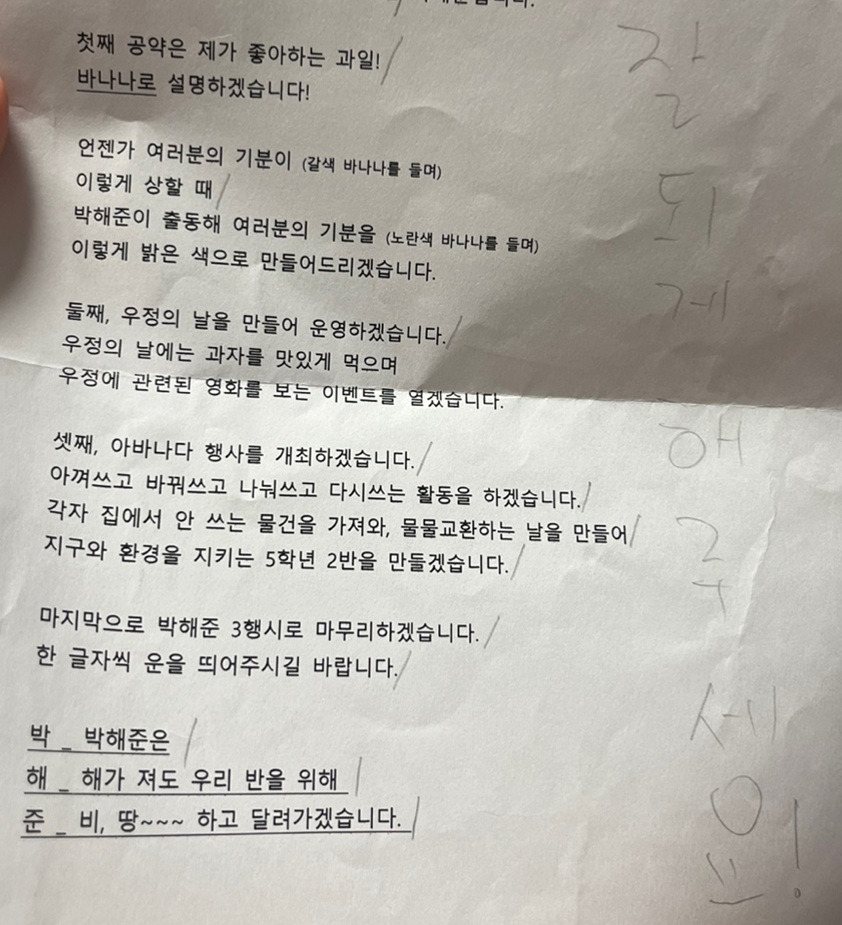 첫째 공약은 제가 좋아하는 과일!
바나나로 설명하겠습니다!
언젠가 여러분의 기분이 (갈색 바나나를 들며)
이렇게 상할 때
박해준이 출동해 여러분의 기분을 (노란색 바나나를 들며)
이렇게 밝은 색으로 만들어드리겠습니다.
둘째, 우정의 날을 만들어 운영하겠습니다.
우정의 날에는 과자를 맛있게 먹으며
우정에 관련된 영화를 보는 이벤트를 열겠습니다.
셋째, 아바나다 행사를 개최하겠습니다.
아껴쓰고 바꿔쓰고 나눠쓰고 다시쓰는 활동을 하겠습니다.
각자 집에서 안 쓰는 물건을 가져와, 물물교환하는 날을 만들어
지구와 환경을 지키는 5학년 2반을 만들겠습니다.
마지막으로 박해준 3행시로 마무리하겠습니다.
한 글자씩 운을 띄어주시길 바랍니다.
박 _ 박해준은
해 _ 해가 져도 우리 반을 위해
준 _ 비, 땅~~~ 하고 달려가겠습니다.
잘
되
게
해
주
세
요!